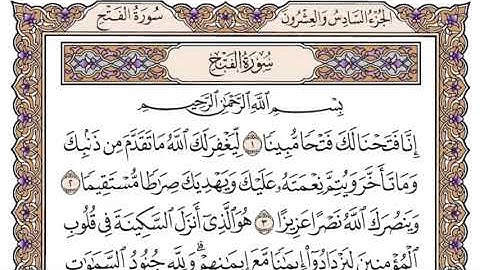 سُورَةُ الفَتْحِ الجُزْءُ السَّادِسُ وَالعِشْرُونَ
سُورَةُ الفَتْحِ
بِسْمِ ٱللَّهِ ٱلرَّحْمَٰنِ ٱلرَّحِيمِ
إِنَّا فَتَحْنَا لَكَ فَتْحًا مُّبِينًا ١ لِّيَغْفِرَ لَكَ ٱللَّهُ مَا تَقَدَّمَ مِن ذَنۢبِكَ
وَمَا تَأَخَّرَ وَيُتِمَّ نِعْمَتَهُۥ عَلَيْكَ وَيَهْدِيَكَ صِرَٰطًا مُّسْتَقِيمًا ٢
وَيَنصُرَكَ ٱللَّهُ نَصْرًا عَزِيزًا ٣ هُوَ ٱلَّذِىٓ أَنزَلَ ٱلسَّكِينَةَ فِى قُلُوبِ
ٱلْمُؤْمِنِينَ لِيَزْدَادُوٓا۟ إِيمَٰنًا مَّعَ إِيمَٰنِهِمْ ۗ وَلِلَّهِ جُنُودُ ٱلسَّمَٰوَٰتِ